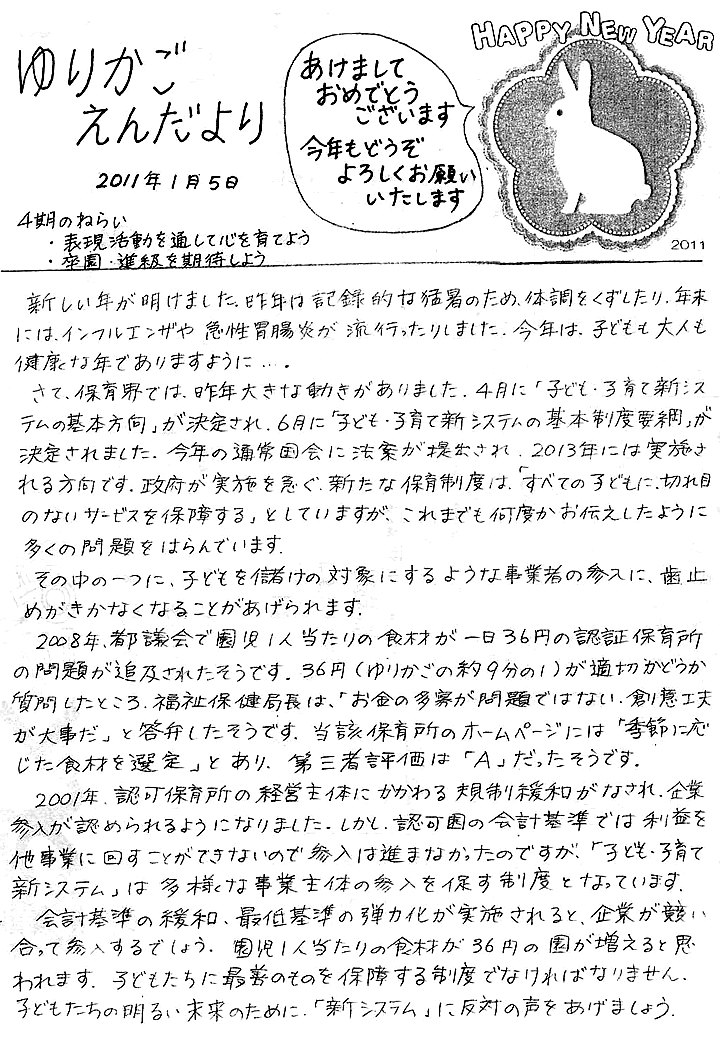 ゆりかご
えんだより
2011年1月5日
あけまして
おめでとう
ございます
今年もどうぞ
よろしくお願い
いたします
HAPPY NEW YEAR
2011
4期のねらい
・表現活動を通して心を育てよう
・卒園・進級を期待しよう
新しい年が明けました。昨年は記録的な猛暑のため、体調をくずしたり、年末
には、インフルエンザや急性胃腸炎が流行ったりしました。今年は、子どもも大人も
健康な年でありますように…。
さて、保育界では、昨年大きな動きがありました。4月に「子ども・子育て新シス
テムの基本方向」が決定され、6月に「子ども・子育て新システムの基本制度要綱」が
決定されました。今年の通常国会に法案が提出され、2013年には実施さ
れる方向です。政府が実施を急ぐ、新たな保育制度は、「すべての子どもに、切れ目
のないサービスを保障する」としていますが、これまでも何度かお伝えしたように
多くの問題をはらんでいます。
その中の一つに、子どもを儲けの対象にするような事業者の参入に、歯止
めがきかなくなることがあげられます。
2008年、都議会で園児1人当たりの食材が一日36円の認証保育所
の問題が追及されたそうです。36円(ゆりかごの約9分の1)が適切かどうか
質問したところ、福祉保健局長は、「お金の多寡が問題ではない、創意工夫
が大事だ」と答弁したそうです。当該保育所のホームページには「季節に応
じた食材を選定」とあり、第三者評価は「A」だったそうです。
2001年、認可保育所の経営主体にかかわる規制緩和がなされ、企業
参入が認められるようになりました。しかし、認可園の会計基準では利益を
他事業に回すことができないので参入は進まなかったのですが、「子ども・子育て
新システム」は多様な事業主体の参入を促す制度となっています。
会計基準の緩和、最低基準の弾力化が実施されると、企業が競い
合って参入するでしょう。園児1人当たりの食材が36円の園が増えると思
われます。子どもたちに最善のものを保障する制度でなければなりません。
子どもたちの明るい未来のために、「新システム」に反対の声をあげましょう。